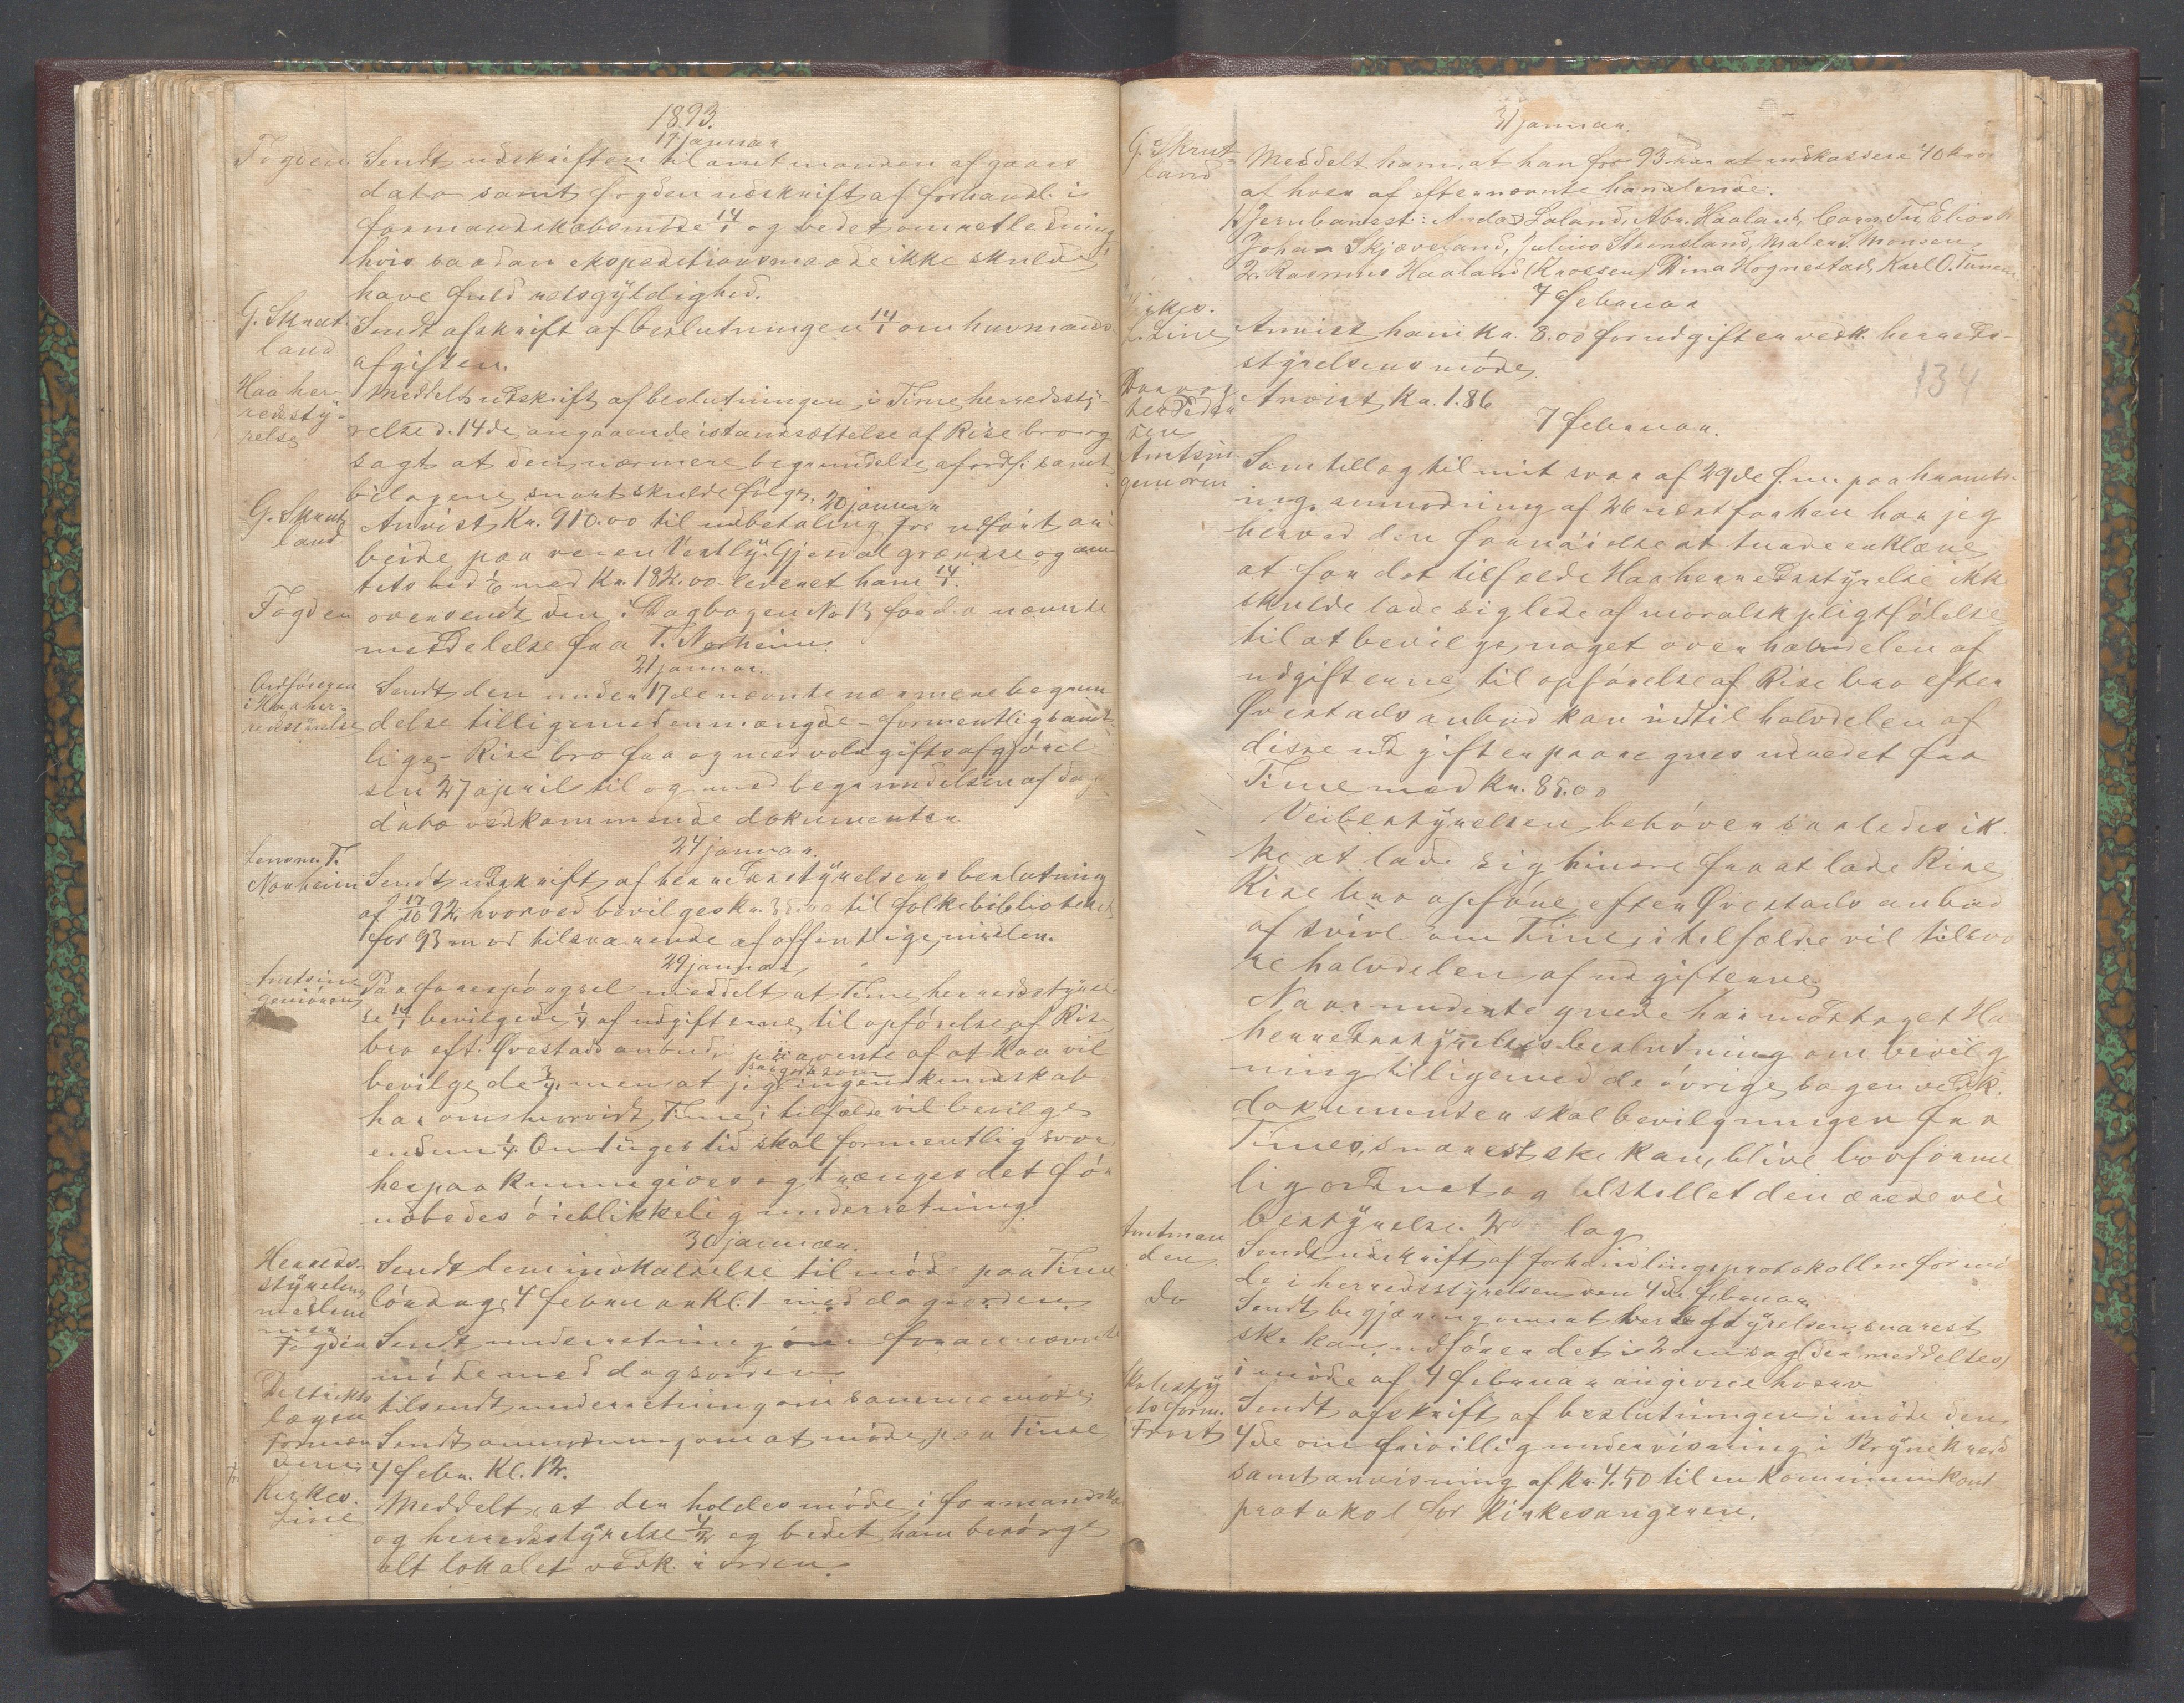 1893.
17 januar
Fogden Sendt udskriften til amtmanden af gaars
dato samt fogden udskrift af forhandl. i
formandskabsmøde 14/1 og bedet om retledning
hvis saadan ekspeditionsmaade ikke skulde
have fuld retsgyldighed.
G. Skrut-
land
Sendt afskrift af beslutningen 14/1 om husmands-
afgiften.
Haa her-
redssty-
relse
Meddelt udskrift af beslutningen i Time herredssty-
relse d. 14de angaaende istandsættelse af Rise bro og
sagt at den nærmere begrundelse af ordf. samt
bilagene snart skulde følge.
20 januar
G. Skrut
land
Anvist Kr. 910.00 til udbetaling for udført ar-
beide paa veien Vestly-Gjesdal grændse og am
tets bid 1/6 med Kr. 182.00 leveret ham 14/1.
Fogden oversendt den i Dagbogen No 13 fordra nævnte
meddelelse fra T. Norheim.
21 januar.
Ordføreren
i Haa her-
redsstyrelse
Sendt den under 17de nævnte nærmere begrun
delse tilligemed en mængde - formentlig samt-
lige - Rise bro fra og med voldgiftsafgjørel-
sen 27 april til og med begrundelsen af dags
dato vedkommende dokumenter
24 januar.
Lensm. T.
Norheim Sendt udskrift af herredsstyrelsens beslutning
af 17/10 92, hvorved bevilges kr. 35.00 til folkebibliotheket
for 93 mod tilsvarende af offentlige midler.
29 januar
Amtsin-
geniøren
Paa forespørgsel meddelt at Time herredsstyrel
se 14/1 bevilgede 1/4 af udgifterne til opførelse af Rise
bro eft. Øvestads anbud i paavente af at Haa vil
bevilge de 3/4, men at jeg ingen kundskab
saagodt som
har om hvorvidt Time i tilfælde vil bevilge
endnu 1/4. Om tilges tid skal formentlig svar
herpaa kunne gives og trænges det før
udbedes øieblikkelig underretning.
30 januar.
Herreds-
styrelsens
medlem
mer
Sendt dem indkaldelse til møde paa Time
lørdag 4 februar Kl. 1 med dagsorden.
Fogden Sendt underretning om forannævnte
møde med dagsorden.
Distrikts
lægen
tilsendt underretning om samme møde
Forman
dene
Sendt anmodning om at møde paa Time
4 febr. Kl. 12.
Kirkes.
Line
Meddelt, at der holdes møde i formandska
og herredsstyrelse 4/2 og bedet ham besørge
alt lokalet vedk. i orden.
31 januar.
G. Skrut-
land
Meddelt ham, at han for 93 har at indkassere 40 kroner
af hver af efternævnte handlende.
1, Jernbanest: Andas Laland, Abr. Haaland, Corn. Tu, Elias
Johan Skjæveland, Julius Steensland, Malene S. Monsen
2. Rasmus Haaland (Krossen) Dina Hognestad, Karl O. Tunem
7 februar
Kirkes.
Line
Anvist ham Kr. 8.00 for udgifter vedk. herreds-
styrelsens møde
134
Anvist Kr. 1.86
7 februar.
Amtsin-
geniøren
Som tillæg til mit svar af 29de f.m. paa hr. amtsin
ing. anmodning af 26 næstforhen har jeg
herved den fornøielse at turde erklære
at for det tilfælde Haa herredsstyrelse ikke
skulde lade sig lede af moralsk pligtfølelse
til at bevilge noget over halvdelen af
udgifterne til opførelse af Rise bro efter
Øvestads anbud kan indtil halvdelen af
disse udgifter paaregnes udredet fra
Time med Kr. 85.00
Veibestyrelsen behøver saaledes ik
ke at lade sig hindre fra at lade Rise
Rise bro opføre efter Øvestads anbud
af tvivl om Time i tilfælde vil tilsva
re halvdelen af udgifterne
Naar undertegnede har modtaget Haa
herredsstyrelses beslutning om bevilg
ning tilligemed de øvrige sagen vedk.
dokumenter skal bevilgningen fra
Time, snarest ske kan, blive lovforme
lig ordnet og tilstillet den ærede vei
bestyrelse. 2 lag
Amtman
den
Sendt udskrift af forhandlingsprotokollen for mø
de i herredsstyrelsen den 4de februar.
Do
Sendt begjæring om at veibestyrelsen snarest
ske kan, udfører det i 2den sag (der meddeltes)
i møde af 4 februar angivne hverv
Skolesty
rels form.
Frost
Sendt afskrift af beslutningen i møde den
4de om frivillig undervisning i Bryne kreds
samt anvisning af kr. 4.50 til en kommunikant
protokol for Kirkesangeren.